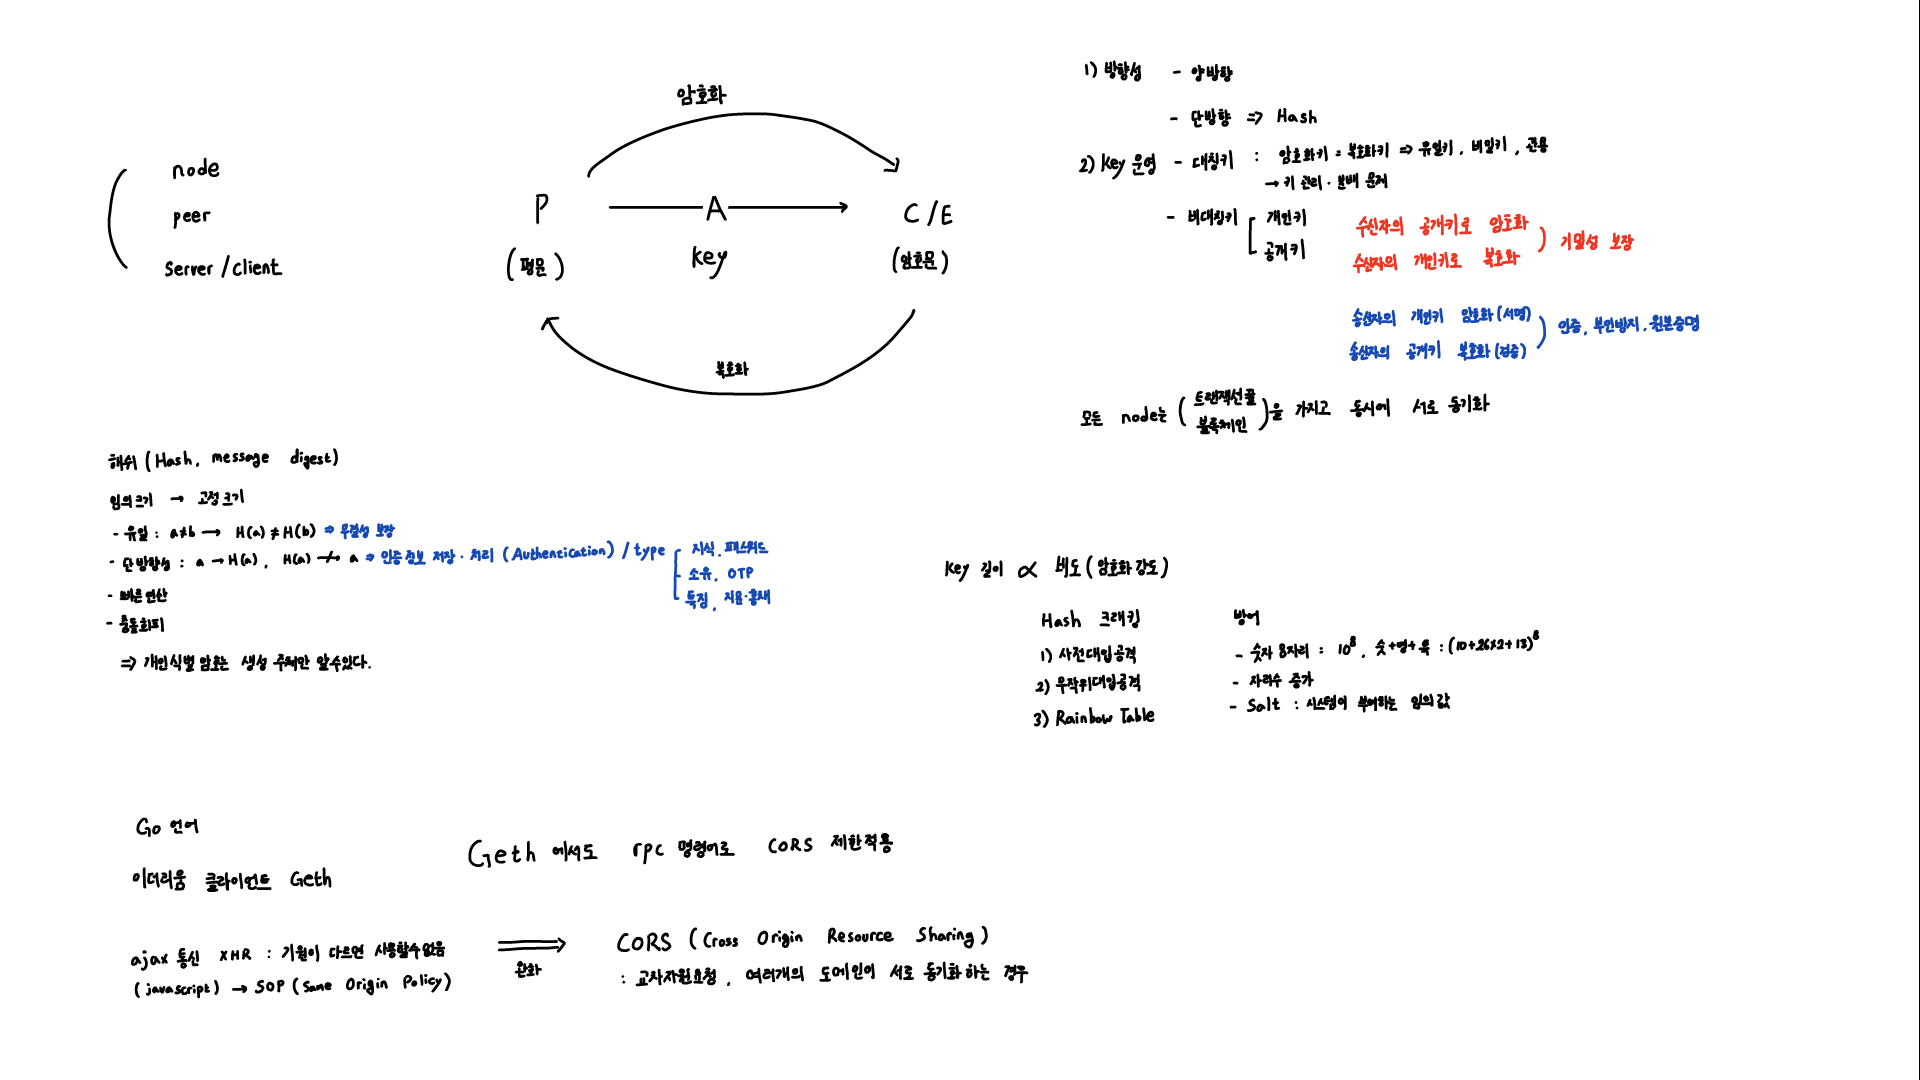 node
peer
server/client
암호화
P
A
C/E
(평문)
key
(암호문)
복호화
1) 방향성 - 양방향
- 단방향 => Hash
2) Key 운영 - 대칭키 : 암호화키 = 복호화키 => 유일키, 비밀키, 관용
→ 키 관리·분배 문제
- 비대칭키
개인키
공개키
수신자의 공개키로 암호화
수신자의 개인키로 복호화
기밀성 보장
송신자의 개인키 암호화(서명)
송신자의 공개키 복호화(검증)
인증, 부인방지, 원본증명
모든 node는 (트랜잭션풀
블록체인)을 가지고 동시에 서로 동기화
해쉬 (Hash, message digest)
임의크기 → 고정크기
- 유일 : a≠b → H(a) ≠ H(b) => 무결성 보장
- 단방향성 : a → H(a), H(a) ↛ a => 인증정보 저장·처리 (Authentication) / type
지식, 패스워드
소유, OTP
특징, 지문·홍채
- 빠른연산
- 충돌회피
=> 개인식별 암호는 생성 주체만 알수있다.
Key 길이 ∝ 비도(암호화 강도)
Hash 크래킹
1) 사전대입공격
2) 무작위대입공격
3) Rainbow Table
방어
- 숫자 8자리 : 10⁸, 숫+영+특 : (10+26×2+13)⁸
- 자리수 증가
- Salt : 시스템이 부여하는 임의값
Go 언어
이더리움 클라이언트 Geth
Geth 에서도 rpc 명령어로 CORS 제한적용
ajax 통신 XHR : 기원이 다르면 사용할수없음
(javascript) → SOP (Same Origin Policy)
완화
CORS (Cross Origin Resource Sharing)
: 교차자원요청, 여러개의 도메인이 서로 동기화 하는 경우